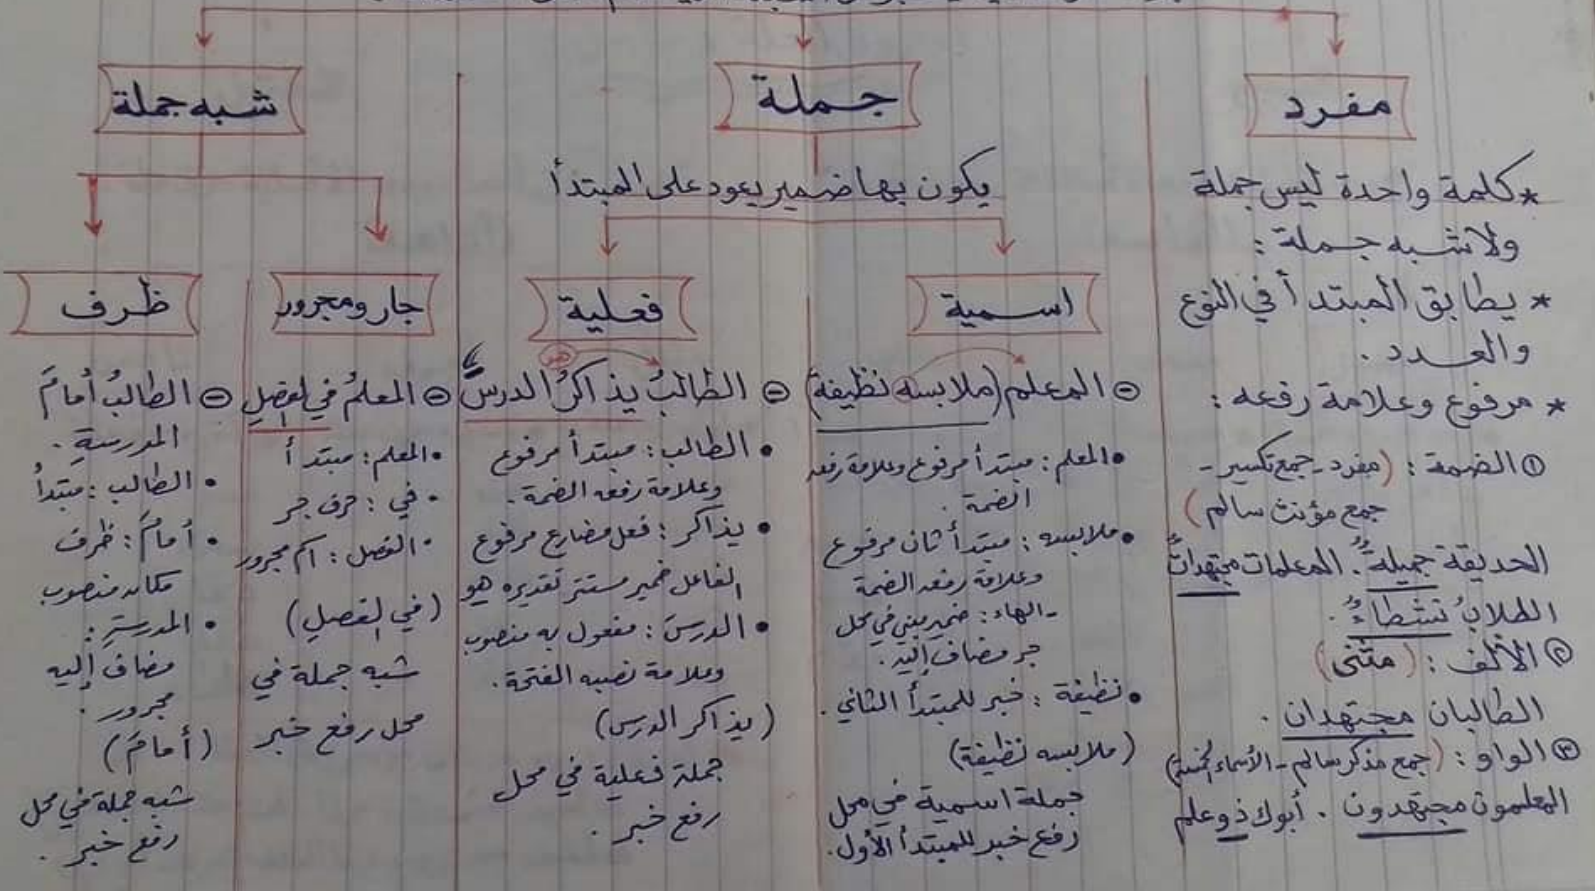 مفرد
جملة
شبه جملة
* كلمة واحدة ليس جملة
ولا شبه جملة :
* يطابق المبتدأ في النوع
والعدد .
* مرفوع وعلامة رفعه :
① الضمة : (مفرد - جمع تكسير -
جمع مؤنث سالم)
الحديقة جميلةٌ . المعلمات مجتهداتٌ
الطلابُ نشطاءُ .
② الألف : (مثنى)
الطالبان مجتهدان .
③ الواو : (جمع مذكر سالم - الأسماء الخمسة)
المعلمون مجتهدون . أبوك ذو علم
يكون بها ضمير يعود على المبتدأ
اسمية
المعلم (ملابسه نظيفة)
• المعلم : مبتدأ مرفوع وعلامة رفعه
الضمة .
• ملابسه : مبتدأ ثان مرفوع
وعلامة رفعه الضمة
- الهاء : ضمير مبني في محل
جر مضاف إليه .
• نظيفة : خبر للمبتدأ الثاني .
(ملابسه نظيفة)
جملة اسمية في محل
رفع خبر للمبتدأ الأول .
فعلية
هو
الطالبُ يذاكرُ الدرسَ
• الطالب : مبتدأ مرفوع
وعلامة رفعه الضمة .
• يذاكر : فعل مضارع مرفوع
الفاعل ضمير مستتر تقديره هو
• الدرسَ : مفعول به منصوب
وعلامة نصبه الفتحة .
(يذاكر الدرس)
جملة فعلية في محل
رفع خبر .
جار ومجرور
المعلمُ في الفصلِ
• المعلم : مبتدأ
• في : حرف جر
• الفصل : اسم مجرور
(في الفصلِ)
شبه جملة في
محل رفع خبر
ظرف
الطالبُ أمامَ
المدرسةِ .
• الطالب : مبتدأ
• أمامَ : ظرف
مكان منصوب
• المدرسةِ :
مضاف إليه
مجرور .
(أمامَ)
شبه جملة في محل
رفع خبر .